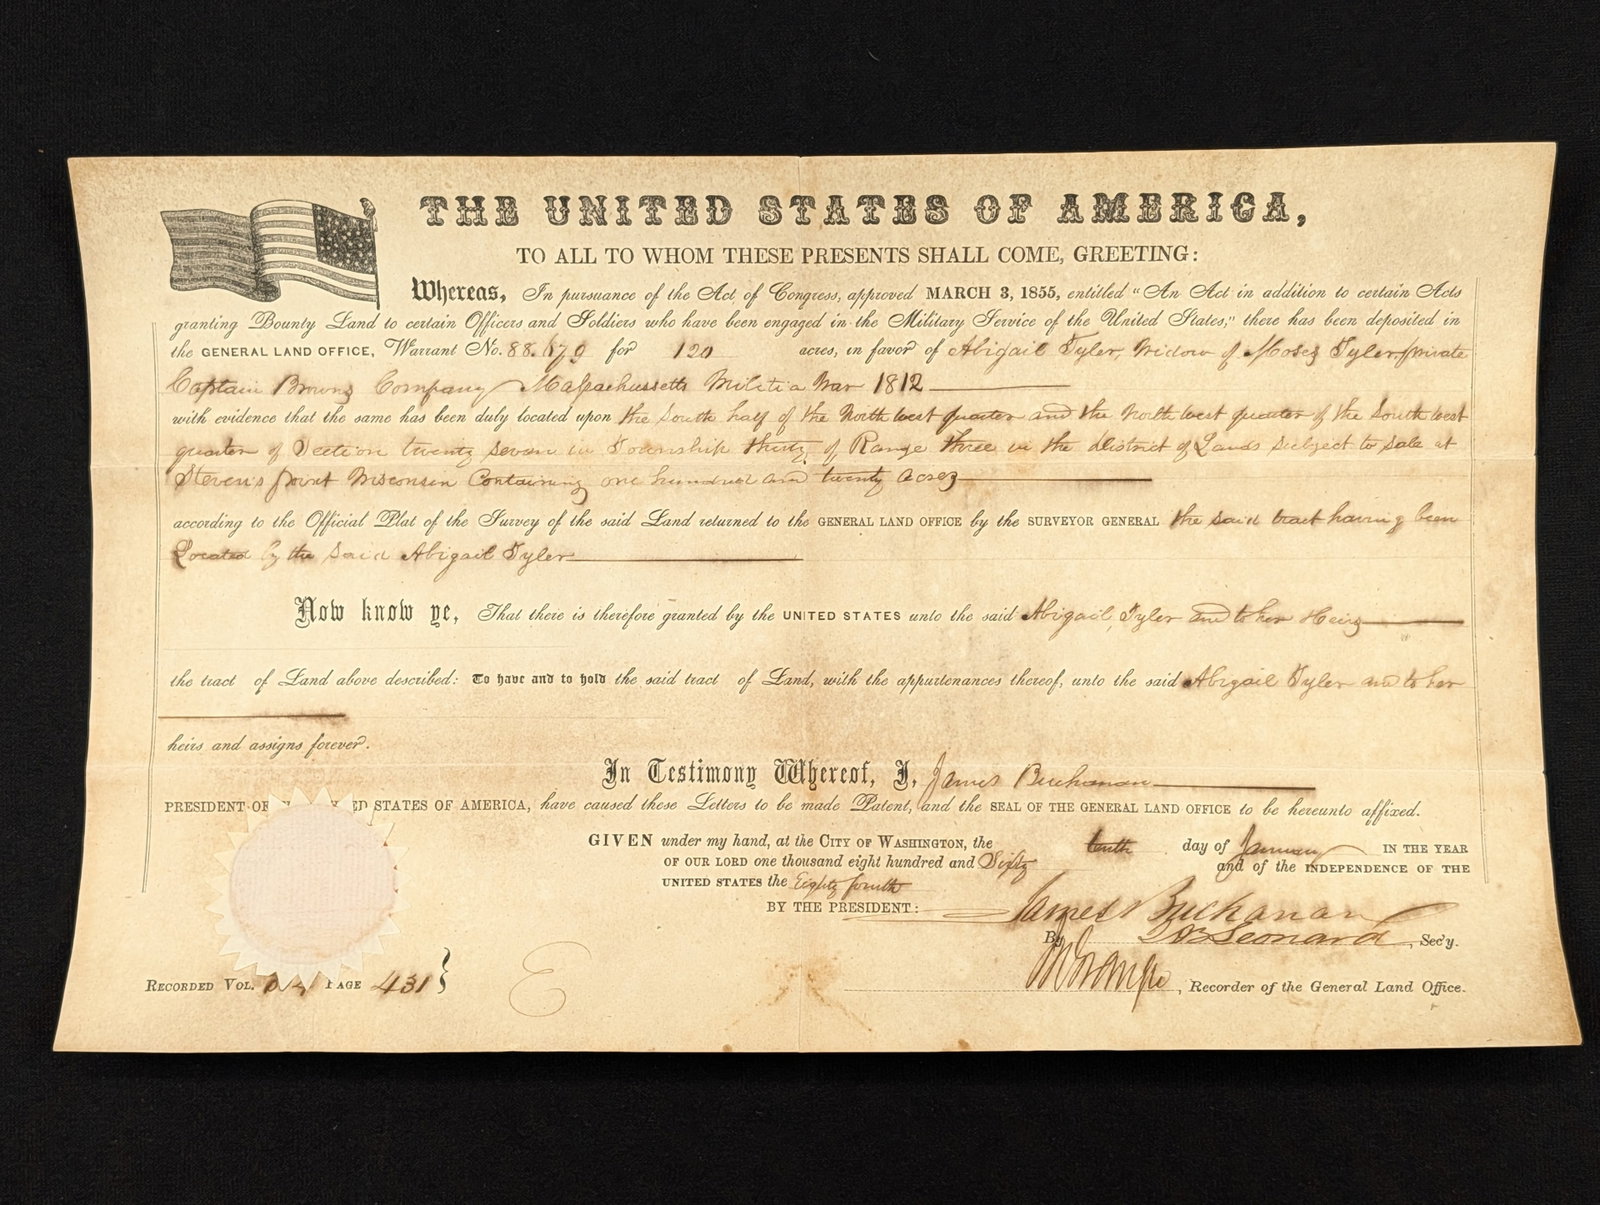 THE UNITED STATES OF AMERICA,
TO ALL TO WHOM THESE PRESENTS SHALL COME, GREETING:
Whereas, In pursuance of the Act of Congress, approved MARCH 3, 1855, entitled "An Act in addition to certain Acts
granting Bounty Land to certain Officers and Soldiers who have been engaged in the Military Service of the United States," there has been deposited in
the GENERAL LAND OFFICE, Warrant No. for 120 acres, in favor of Abigail Tyler, Widow of Moses Tyler, private
Captain Browns Company Massachusetts Militia War 1812
with evidence that the same has been duly located upon the South half of the North west quarter and the North west quarter of the South west
quarter of Section twenty seven in Township thirty of Range three in the district of Lands subject to sale at
Steven's point Wisconsin Containing one hundred and twenty acres
according to the Official Plat of the Survey of the said Land returned to the GENERAL LAND OFFICE by the SURVEYOR GENERAL the said tract having been
Located by the said Abigail Tyler
Now know ye, That there is therefore granted by the UNITED STATES unto the said Abigail Tyler and to her Heirs
the tract of Land above described: To have and to hold the said tract of Land, with the appurtenances thereof, unto the said Abigail Tyler and to her
heirs and assigns forever.
In Testimony Whereof, I, James Buchanan
PRESIDENT OF ED STATES OF AMERICA, have caused these Letters to be made Patent, and the SEAL OF THE GENERAL LAND OFFICE to be hereunto affixed.
GIVEN under my hand, at the CITY OF WASHINGTON, the tenth day of January IN THE YEAR
OF OUR LORD one thousand eight hundred and Sixty and of the INDEPENDENCE OF THE
UNITED STATES the Eighty fourth
BY THE PRESIDENT: James Buchanan
By Leonard, Sec'y.
, Recorder of the General Land Office.
RECORDED VOL. PAGE 431